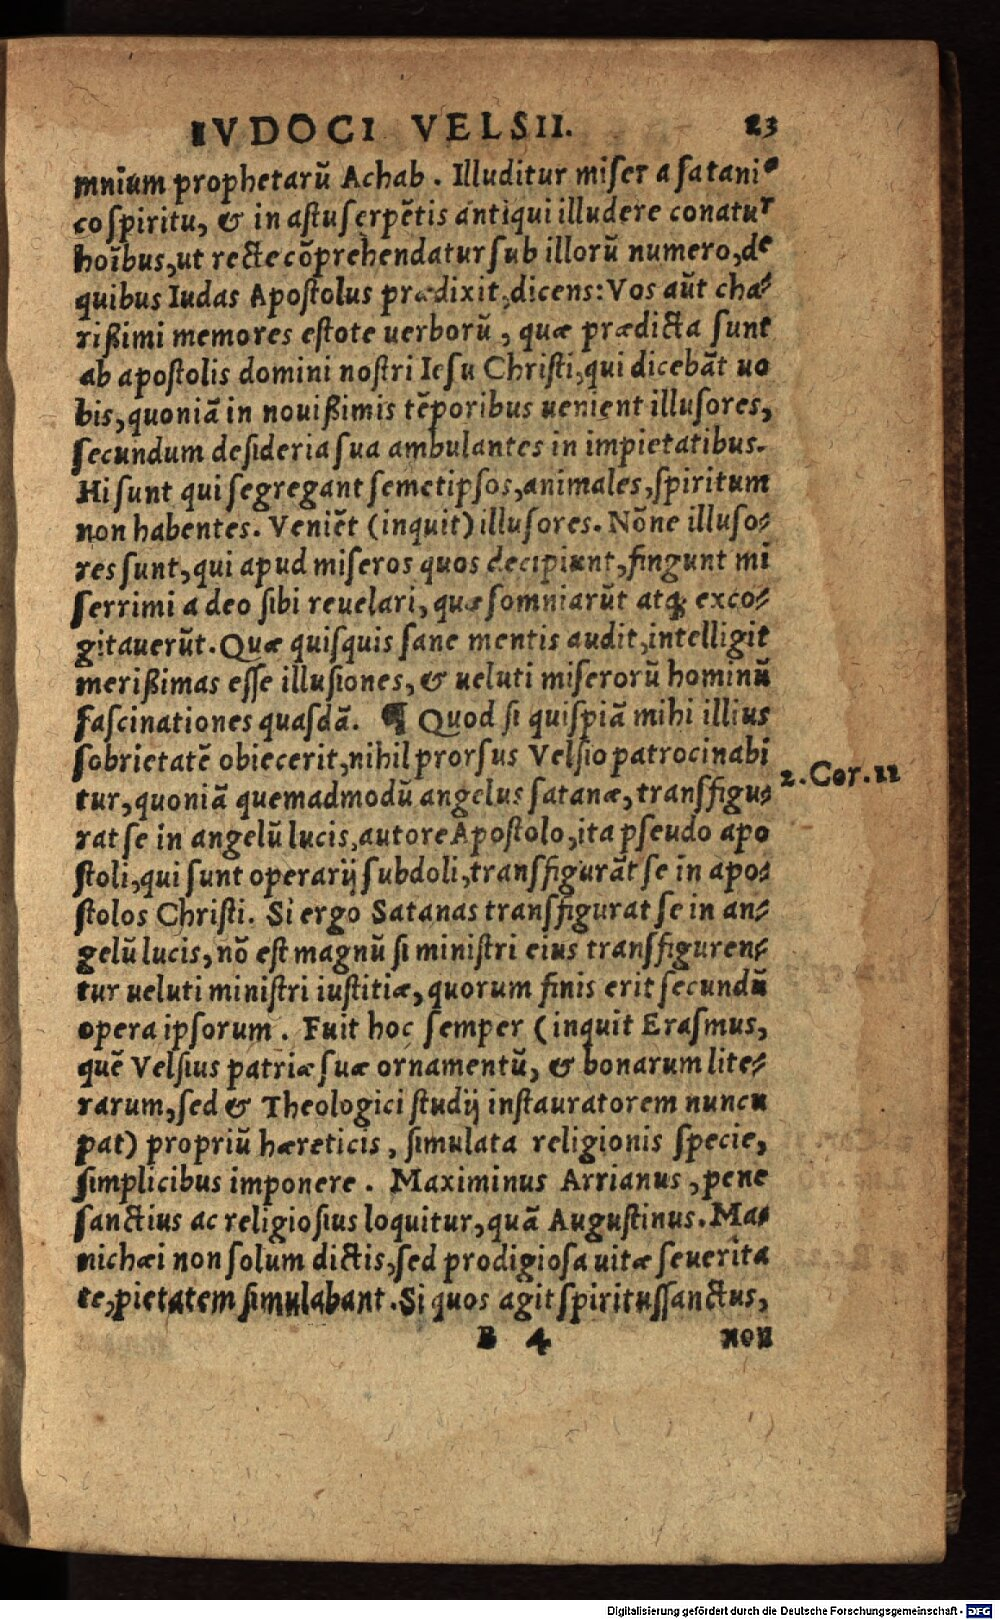 IVDOCI VELSII. 23
mnium prophetarũ Achab. Illuditur miſer a ſatani⸗
co ſpiritu, & in aſtu ſerpẽtis antiqui illudere conatur
hoĩbus, ut recte cõprehendatur ſub illorũ numero, de
quibus Iudas Apoſtolus prædixit, dicens: Vos aũt cha⸗
rißimi memores eſtote uerborũ, quæ prædicta ſunt
ab apoſtolis domini noſtri Ieſu Chriſti, qui dicebãt uo
bis, quoniã in nouißimis tẽporibus uenient illuſores,
ſecundum deſideria ſua ambulantes in impietatibus.
Hi ſunt qui ſegregant ſemetipſos, animales, ſpiritum
non habentes. Veniẽt (inquit) illuſores. Nõne illuſo⸗
res ſunt, qui apud miſeros quos decipiunt, fingunt mi
ſerrimi a deo ſibi reuelari, quæ ſomniarũt atq; exco⸗
gitauerũt. Quæ quiſquis ſane mentis audit, intelligit
merißimas eſſe illuſiones, & ueluti miſerorũ hominũ
faſcinationes quaſdã. ¶ Quod ſi quiſpiã mihi illius
ſobrietatẽ obiecerit, nihil prorſus Velſio patrocinabi
tur, quoniã quemadmodũ angelus ſatanæ, transfigu⸗
2. Cor. 11
rat ſe in angelũ lucis, autore Apoſtolo, ita pſeudo apo
ſtoli, qui ſunt operarij ſubdoli, transfigurãt ſe in apo⸗
ſtolos Chriſti. Si ergo Satanas transfigurat ſe in an⸗
gelũ lucis, nõ eſt magnũ ſi miniſtri eius transfiguren⸗
tur ueluti miniſtri iuſtitiæ, quorum finis erit ſecundũ
opera ipſorum. Fuit hoc ſemper (inquit Eraſmus,
quẽ Velſius patriæ ſuæ ornamentũ, & bonarum lite⸗
rarum, ſed & Theologici ſtudij inſtauratorem nuncu
pat) propriũ hæreticis, ſimulata religionis ſpecie,
ſimplicibus imponere. Maximinus Arrianus, pene
ſanctius ac religioſius loquitur, quã Auguſtinus. Ma⸗
nichæi non ſolum dictis, ſed prodigioſa uitæ ſeuerita
te, pietatem ſimulabant. Si quos agit ſpirituſſanctus,
B 4 non
Digitalisierung gefördert durch die Deutsche Forschungsgemeinschaft - DFG